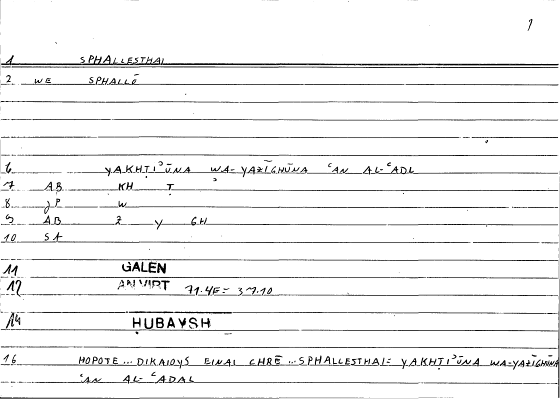 1
1 SPHALLESTHAI
2 WE SPHALLŌ
6 YAKHṬIʾŪNA WA-YAZĪGHŪNA ʿAN AL-ʿADL
7 AB KH Ṭ ʾ
8 JP W
9 AB Z Y GH
10 SA
11 GALEN
12 AN VIRT 71.4E = 37.10
14 ḤUBAYSH
16 HOPOTE ... DIKAIOYS EINAI CHRĒ ... SPHALLESTHAI = YAKHṬIʾŪNA WA-YAZĪGHŪNA
ʿAN AL-ʿADAL